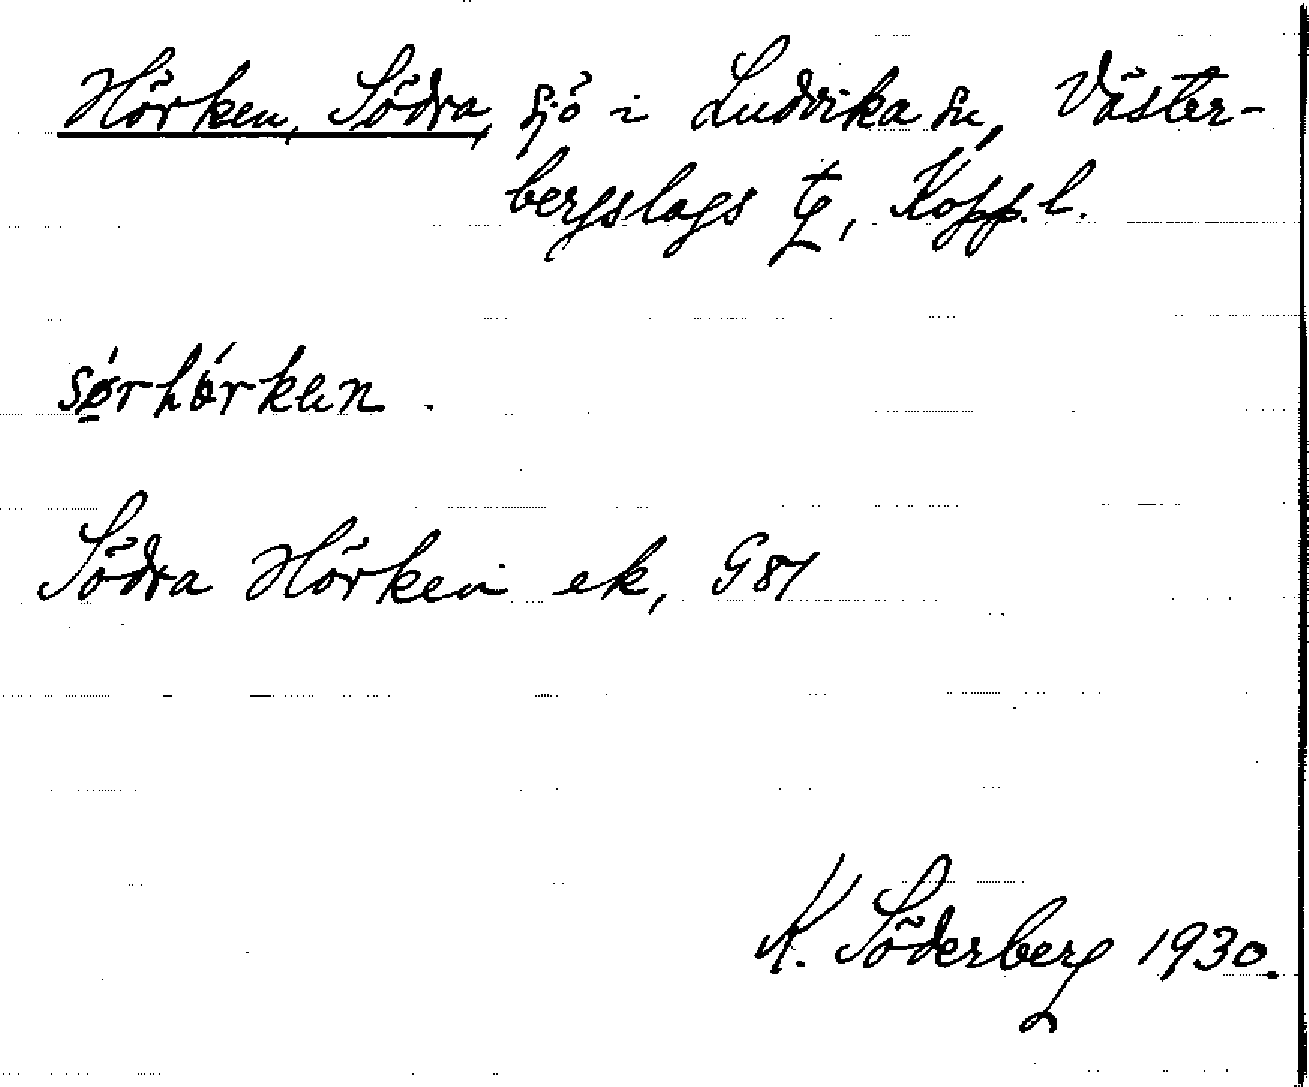 Hörken, Södra, sjö i Ludvika sn, Väster-
bergslags tg, Kopp. l.
sørhørkən.
Södra Hörken ek, G 81
K. Söderberg 1930.